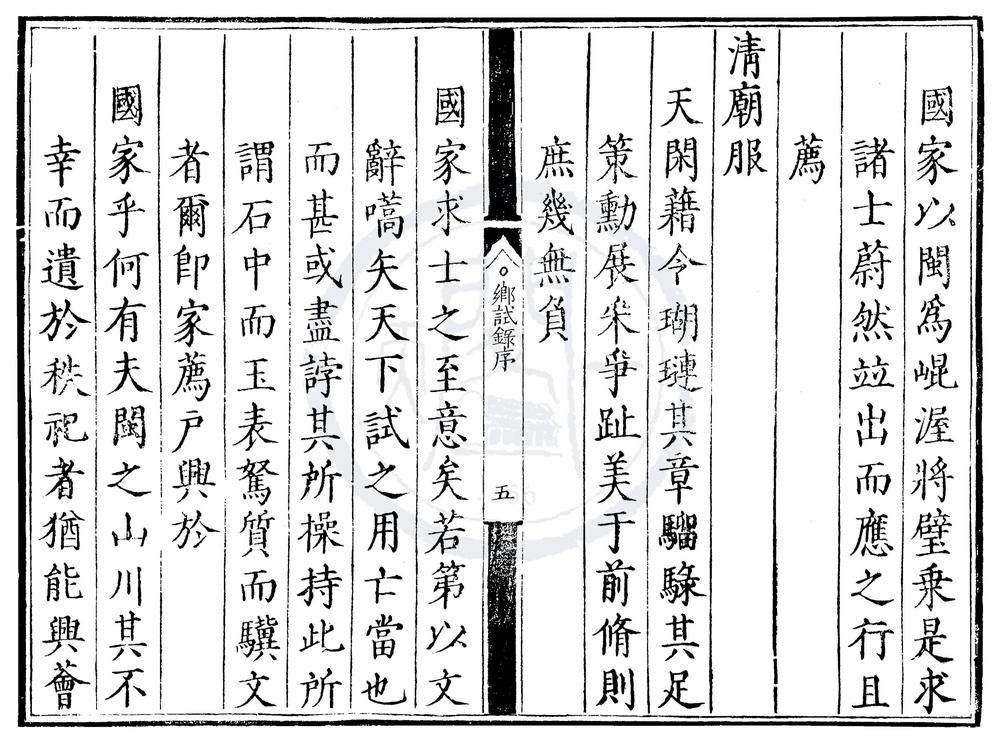 國家以閩爲崐渥將璧乗是求
諸士蔚然竝出而應之行且
薦
清廟服
天閑藉令瑚璉其章騮騄其足
策勳展采爭趾美于前脩則
庶幾無負
鄉試錄序
五
國家求士之至意矣若第以文
辭嚆矢天下試之用亡當也
而甚或盡誖其所操持此所
謂石中而玉表駑質而驥文
者爾卽家薦戶興於
國家乎何有夫閩之山川其不
幸而遺於秩祀者猶能興薈